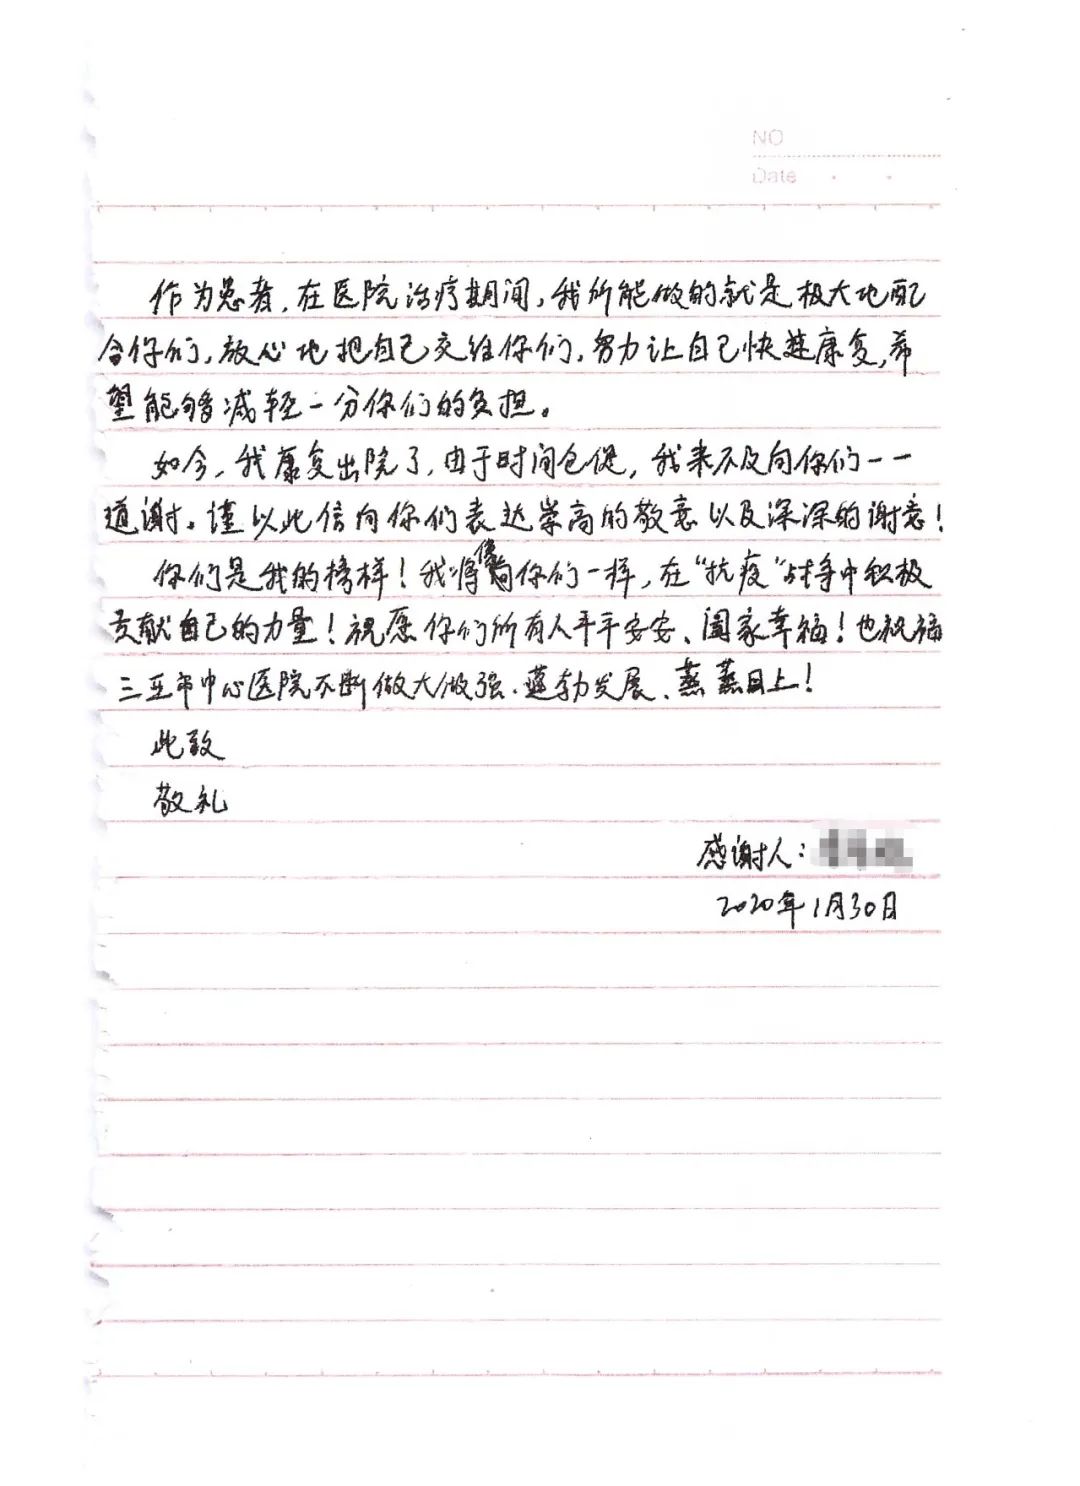 NO
Date
作为患者,在医院治疗期间,我所能做的就是极大地配
合你们,放心地把自己交给你们,努力让自己快速康复,希
望能够减轻一分你们的负担。
如今,我康复出院了,由于时间仓促,我来不及向你们一一
道谢。谨以此信向你们表达崇高的敬意以及深深的谢意!
你们是我的榜样!我将像你们一样,在“抗疫”战争中积极
贡献自己的力量!祝愿你们所有人平平安安、阖家幸福!也祝福
三亚市中心医院不断做大做强、蓬勃发展、蒸蒸日上!
此致
敬礼
感谢人:
2020年1月30日